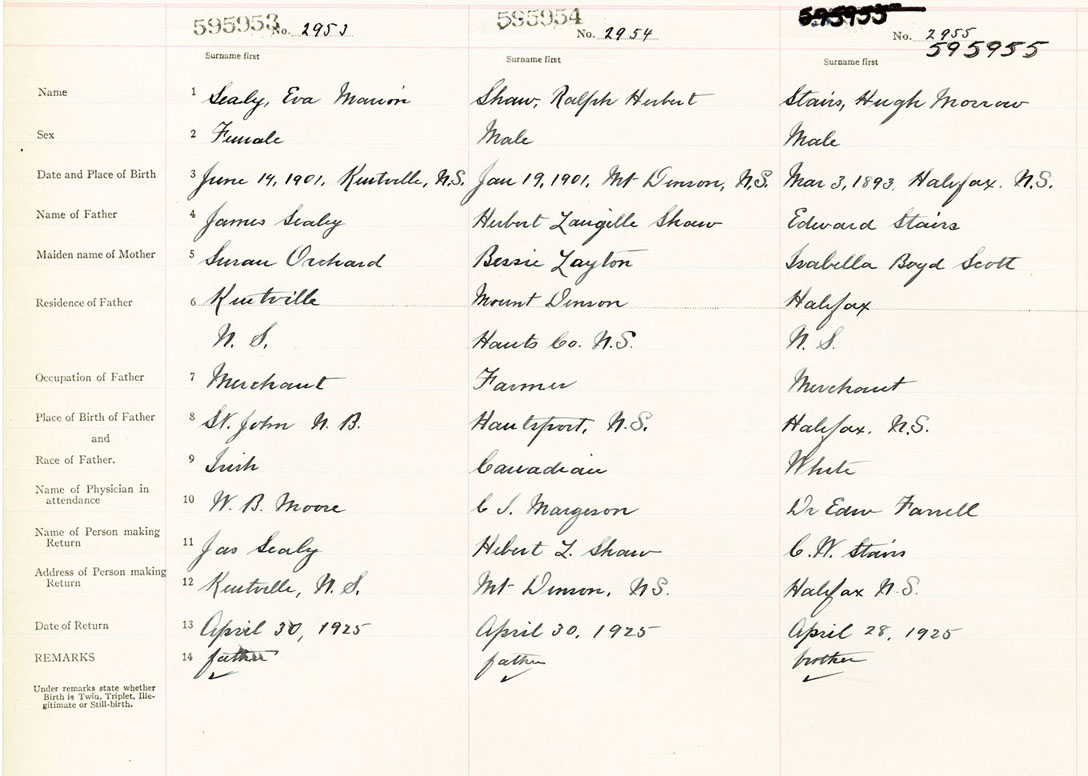 595953 No. 2953
Surname first
595954
No. 2954
Surname first
595955
No. 2955
595955
Surname first
Name 1 Sealy, Eva Marion Shaw, Ralph Herbert Stairs, Hugh Morrow
Sex 2 Female Male Male
Date and Place of Birth 3 June 14, 1901, Kentville, N.S. Jan 19, 1901, Mt Denson, N.S. Mar 3, 1893, Halifax. N.S.
Name of Father 4 James Sealy Herbert Langille Shaw Edward Stairs
Maiden name of Mother 5 Susan Orchard Bessie Layton Isabella Boyd Scott
Residence of Father 6 Kentville Mount Denson Halifax
N. S. Hants Co. N.S. N. S.
Occupation of Father 7 Merchant Farmer Merchant
Place of Birth of Father 8 St. John N. B. Hantsport, N.S. Halifax. N.S.
and
Race of Father. 9 Irish Canadian White
Name of Physician in
attendance 10 W. B. Moore C S. Margeson Dr Edw Farrell
Name of Person making
Return 11 Jas Sealy Hebert L. Shaw C. W. Stairs
Address of Person making
Return 12 Kentville, N. S. Mt Denson, N.S. Halifax N.S.
Date of Return 13 April 30, 1925 April 30, 1925 April 28, 1925
REMARKS 14 father father brother
Under remarks state whether
Birth is Twin, Triplet, Ille-
gitimate or Still-birth.